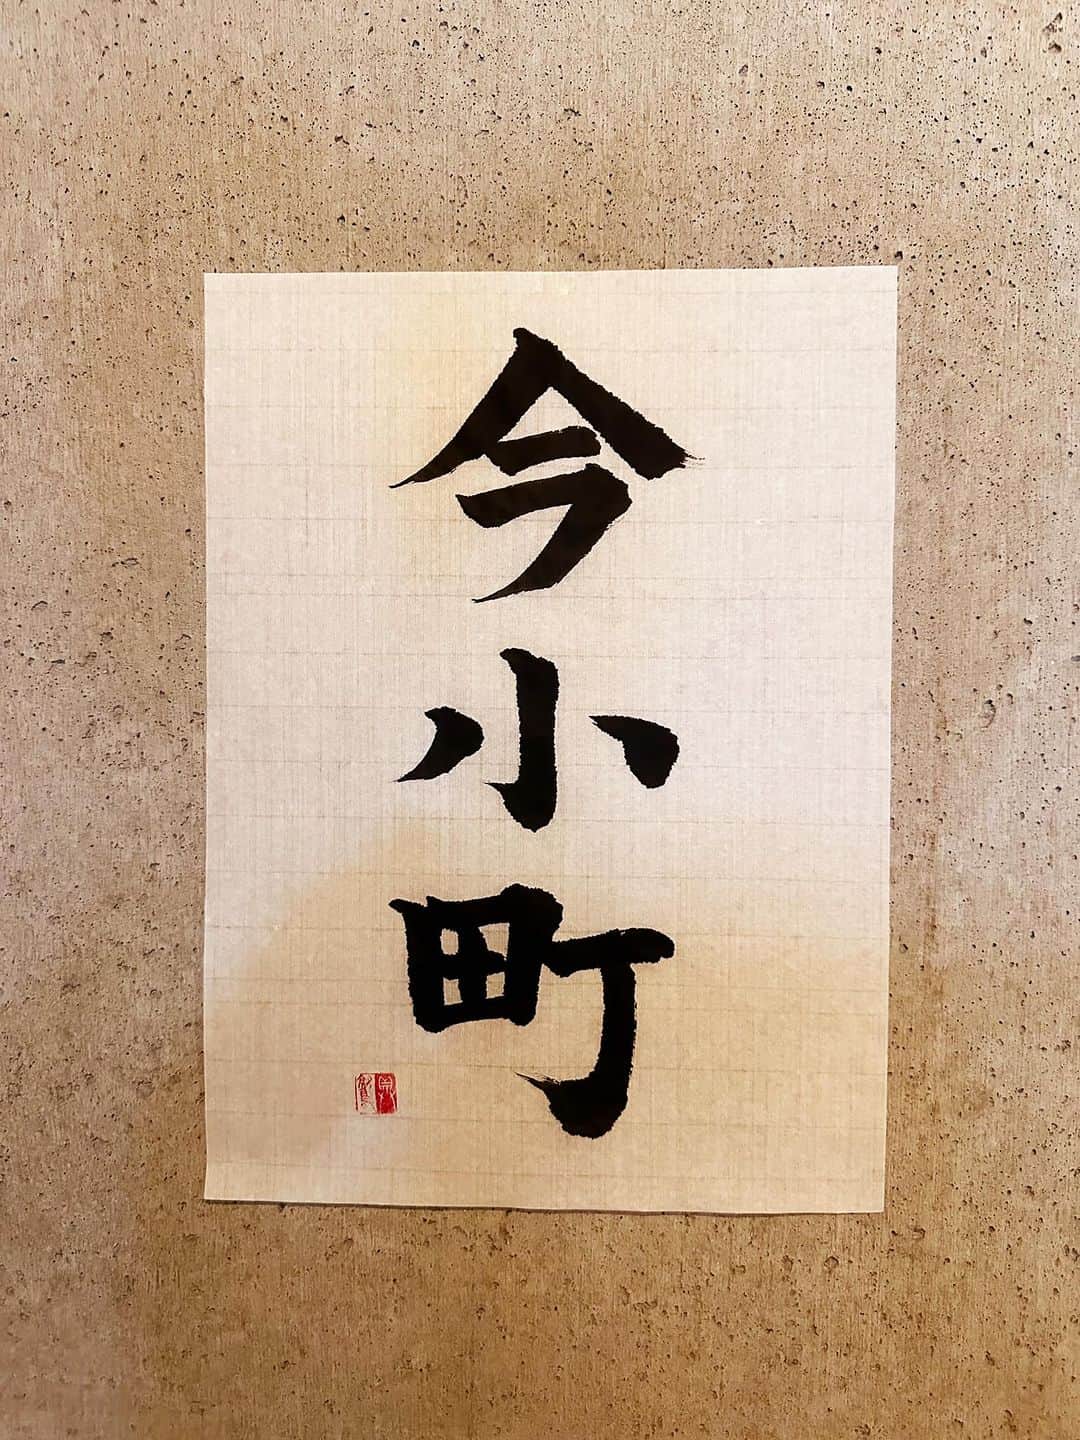 今小町